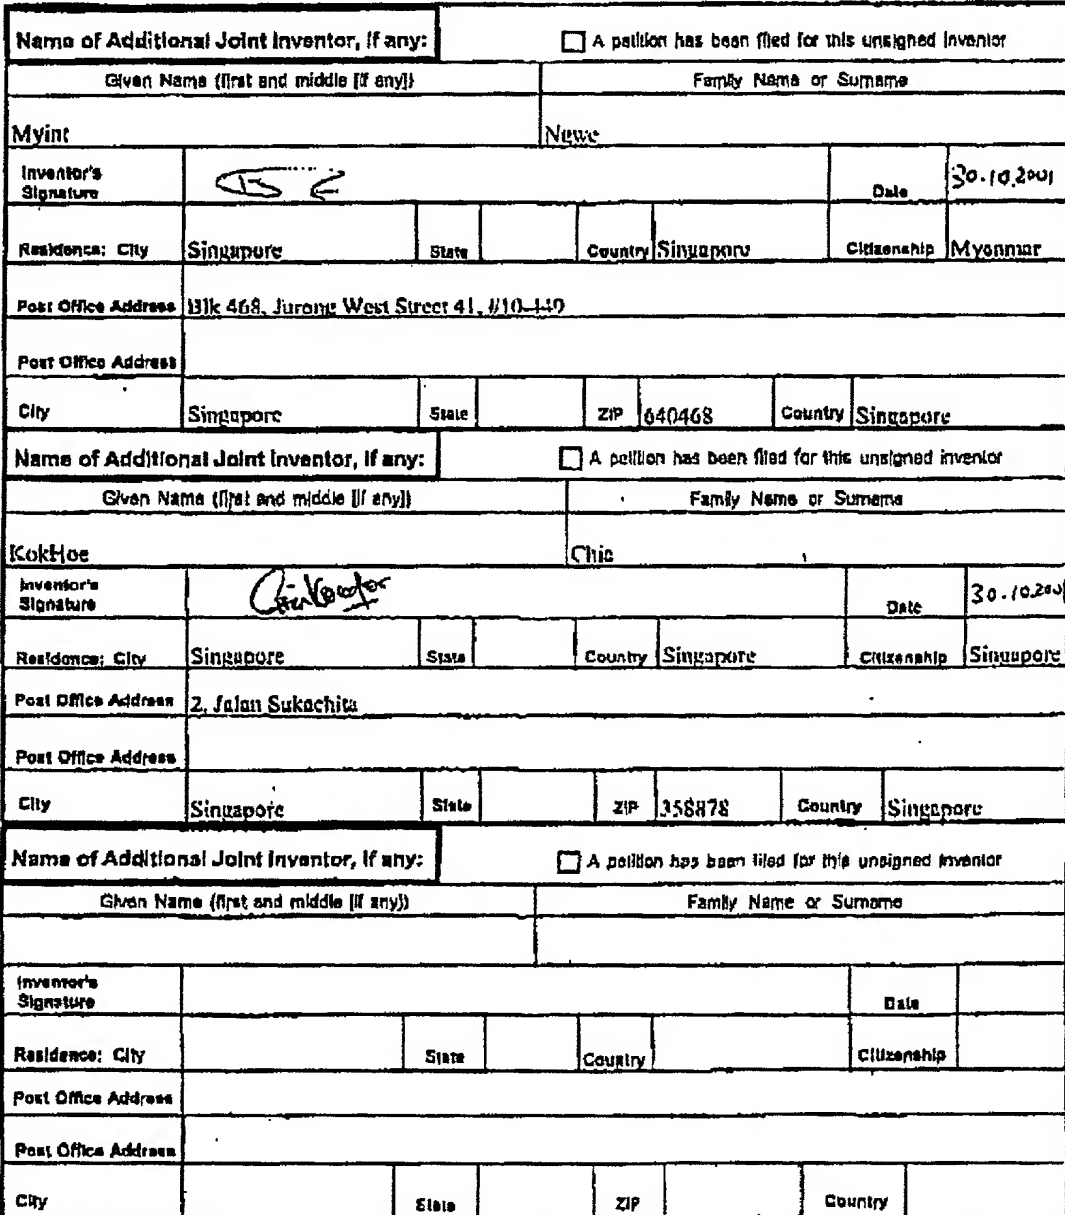 Name of Additional Joint Inventor, if any: A petition has been filed for this unsigned inventor
Given Name (first and middle [if any]) Family Name or Surname
Myint Ngwe
Inventor's Signature Date 30.10.2001
Residence: City Singapore State Country Singapore Citizenship Myanmar
Post Office Address Blk 468, Jurong West Street 41, #10-149
Post Office Address
City Singapore State ZIP 640468 Country Singapore
Name of Additional Joint Inventor, if any: A petition has been filed for this unsigned inventor
Given Name (first and middle [if any]) Family Name or Surname
KokHoe Chia
Inventor's Signature Date 30.10.2001
Residence: City Singapore State Country Singapore Citizenship Singapore
Post Office Address 2, Jalan Sukachita
Post Office Address
City Singapore State ZIP 358878 Country Singapore
Name of Additional Joint Inventor, if any: A petition has been filed for this unsigned inventor
Given Name (first and middle [if any]) Family Name or Surname
Inventor's Signature Date
Residence: City State Country Citizenship
Post Office Address
Post Office Address
City State ZIP Country